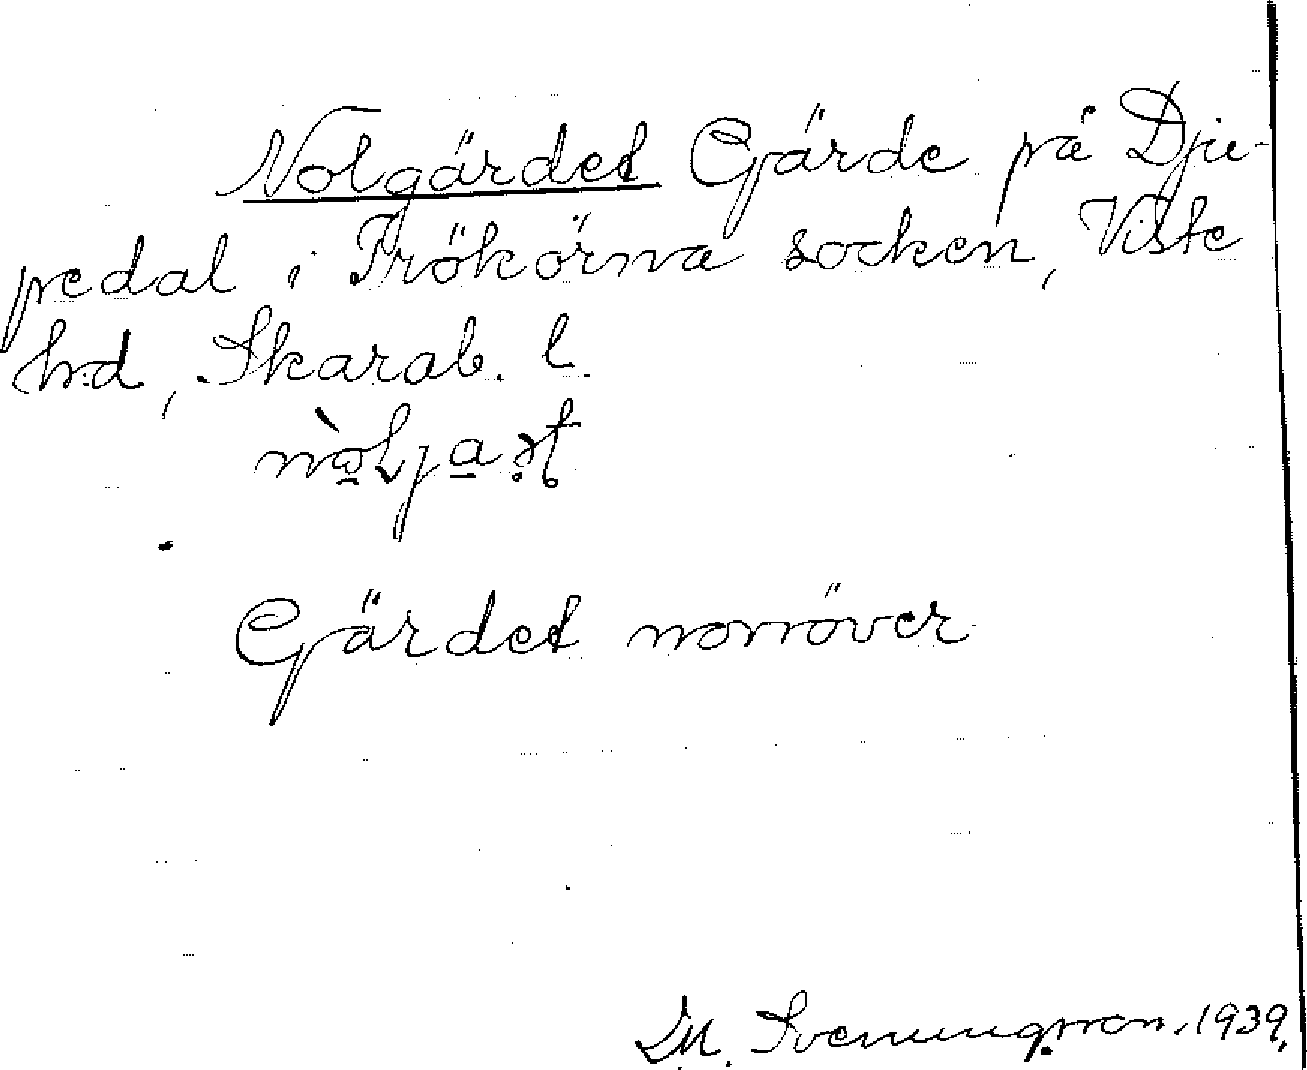 Nolgärdet Gärde på Dju-
pedal i Trökörna socken, Viste
hd, Skarab. l.
Gärdet norröver
M. Sveningsson. 1939.